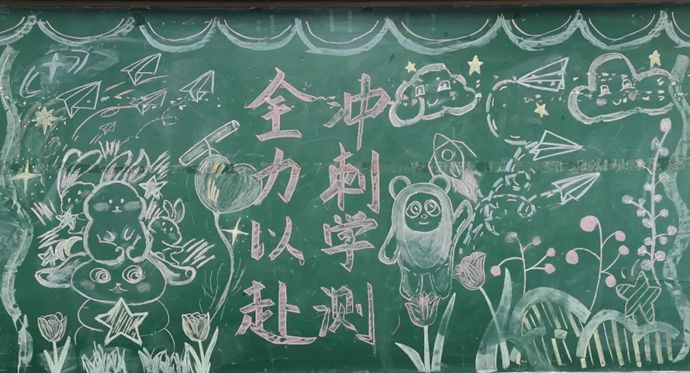 冲刺学测
全力以赴